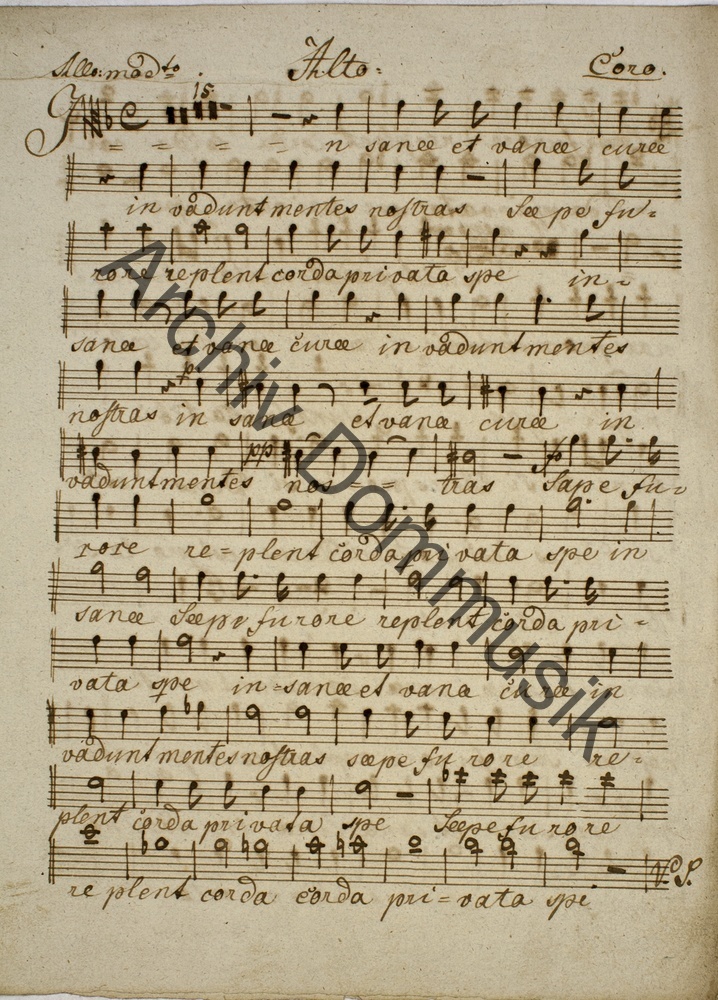 Allo: modto. Alto: Coro.
15
= = = = n sanæ et vanæ curæ
in vadunt mentes nostras Sæ pe fu-
rore replent corda pri vata spe in -
sanæ et vanæ curæ in vadunt mentes
p
nostras in sanæ et vanæ curæ in
pp
vadunt mentes nos - - tras Sæpe fu-
rore re = plent corda pri vata spe in
sanæ Sæpe fu rore replent corda pri -
vata spe in - sanæ et vana curæ in
vadunt mentes nostras sæpe fu rore re -
plent corda pri vata spe Sæpe fu rore
V. S.
re plent corda corda pri = vata spe
Archiv Dommusik